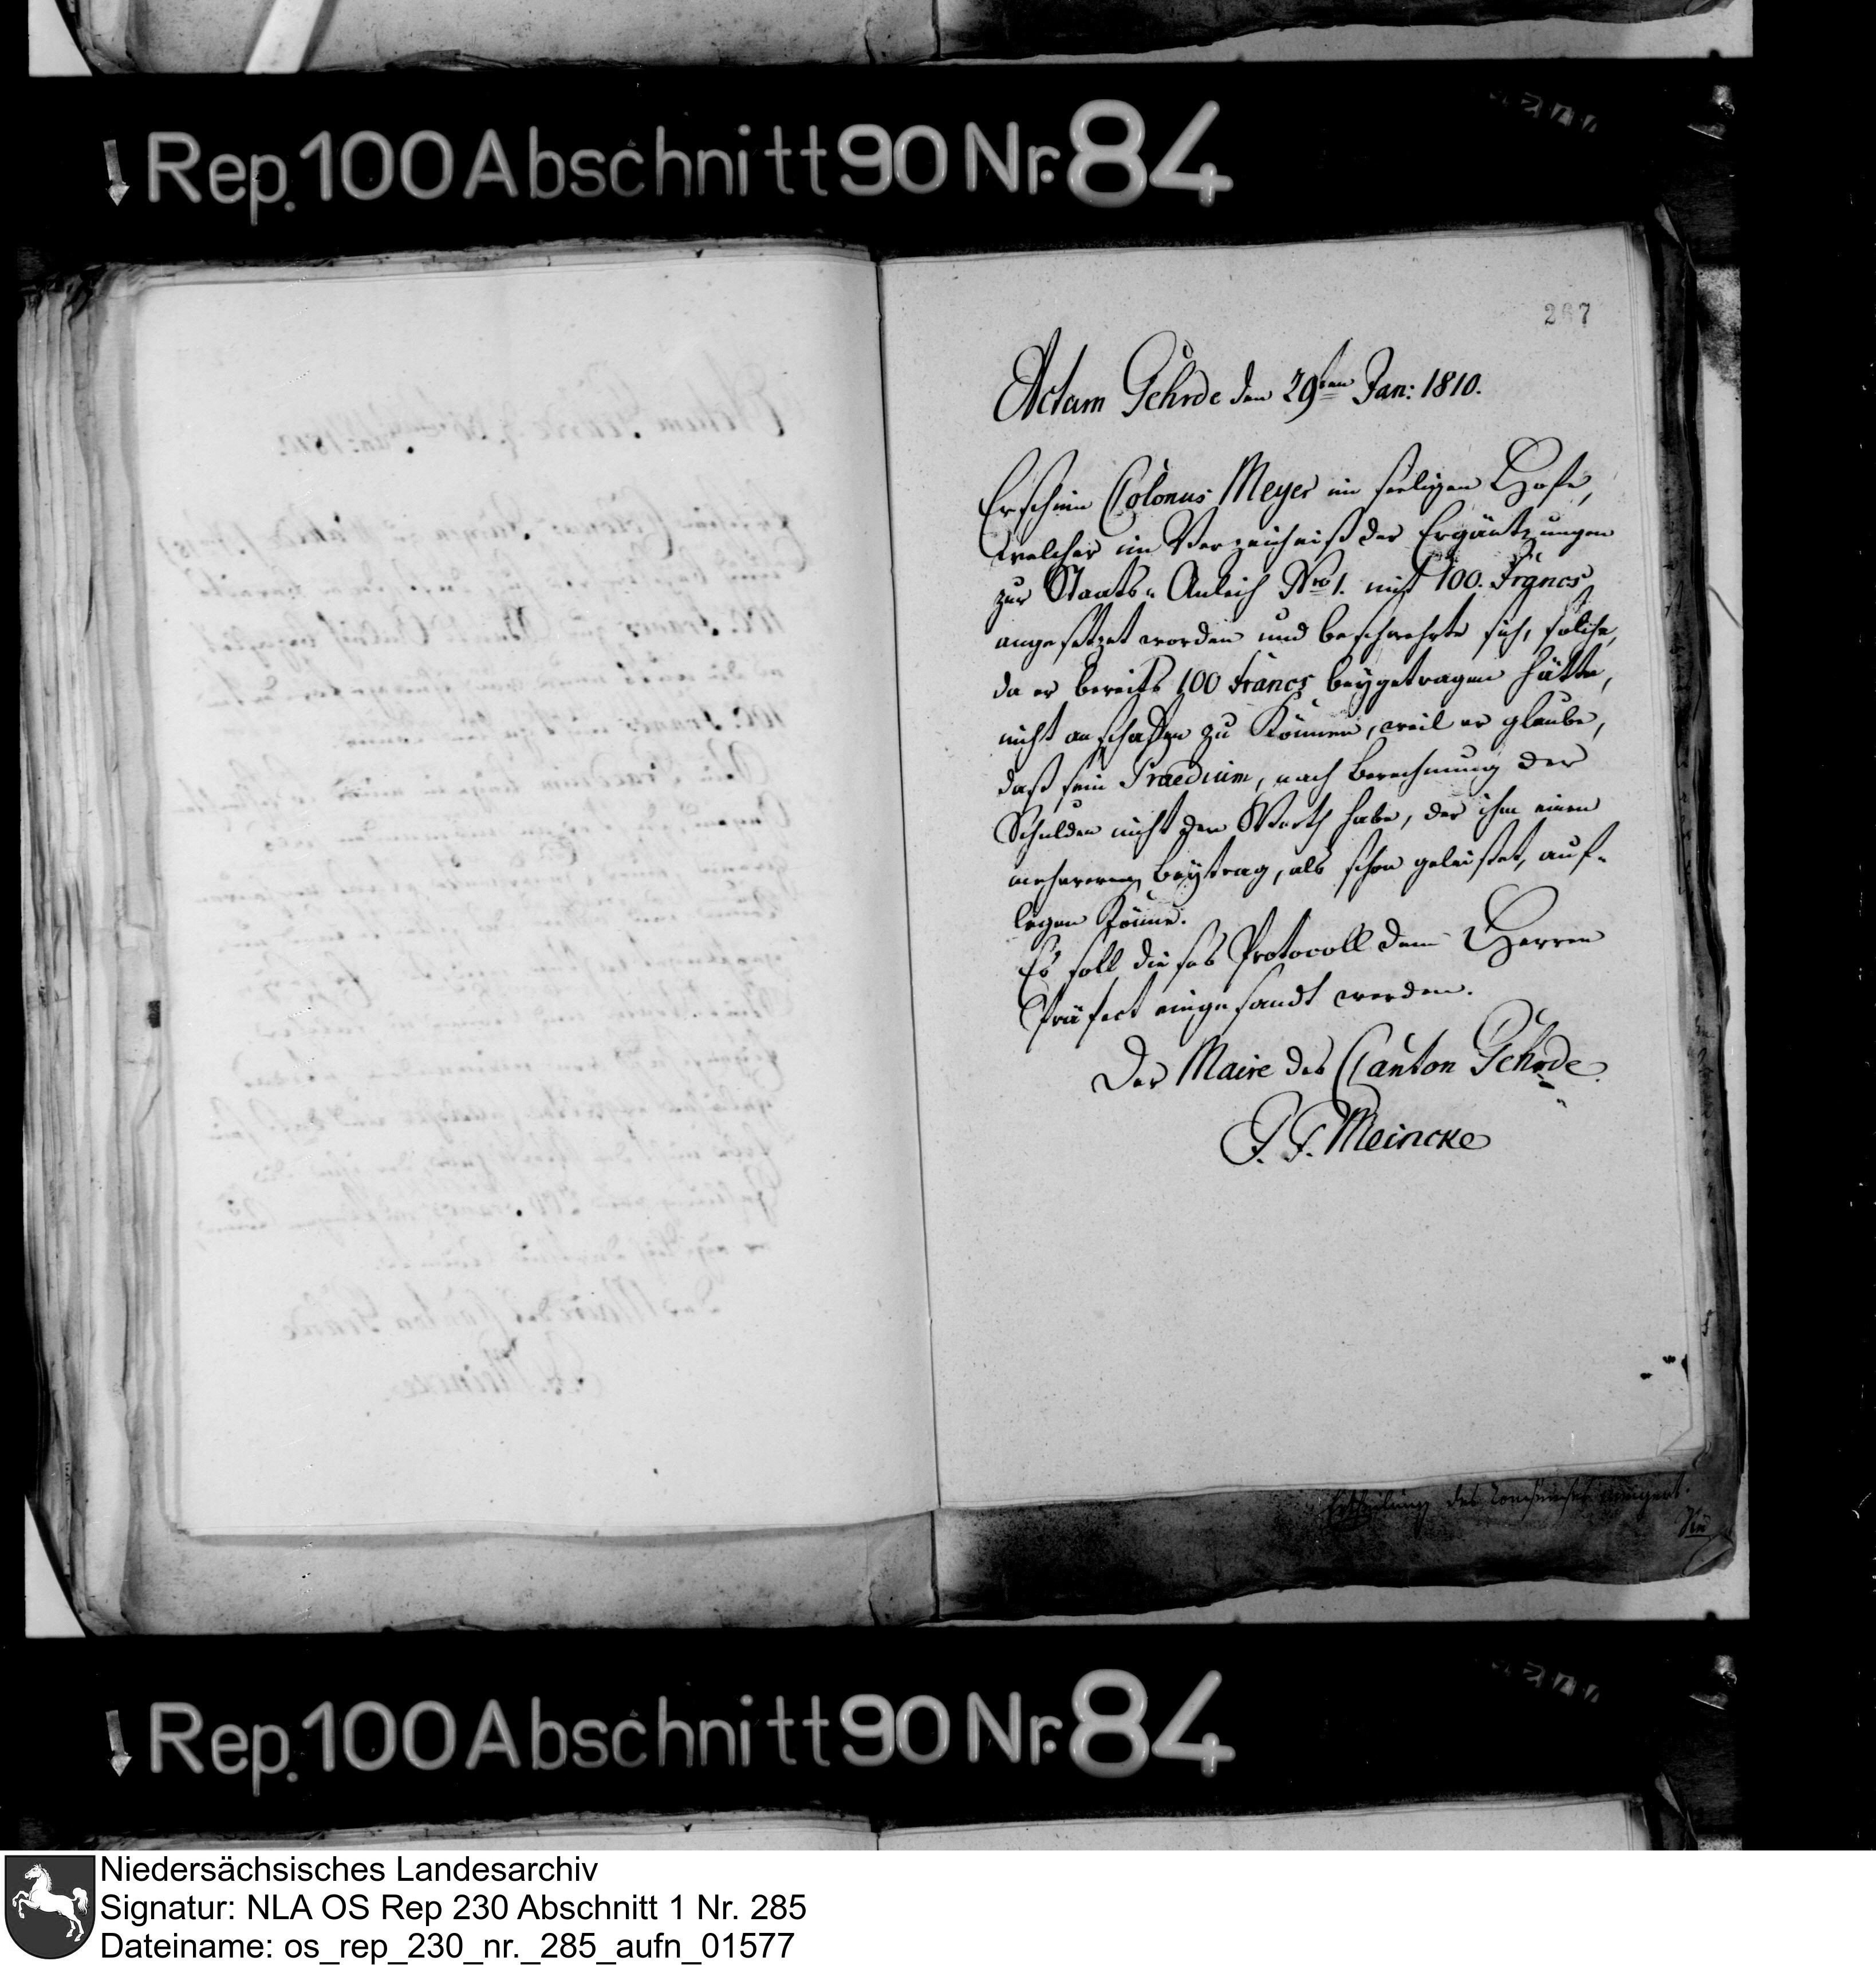 Rep. 100 Abschnitt 90 Nr. 84
267
Actum Gehrde den 29ten Jan: 1810.
Erschien Colonus Meyer im seeligen Hofe,
welcher im Verzeichniß der Ergäntzungen
zur Staats-Anleih Nro 1. mit 100. Francs
angesetzet worden und beschwehrte sich, solche,
da er bereits 100 Francs beygetragen hätte,
nicht anschaffen zu können, weil er glaube,
daß sein Praedium, nach Berechnung der
Schulden nicht den Werth habe, der ihm einen
mehreren Beytrag, als schon geleistet, auf-
legen könne.
Es soll dieses Protocoll dem Herren
Präfect eingesandt werden.
Der Maire des Canton Gehrde.
J. F. Meincke
des
Rep. 100 Abschnitt 90 Nr. 84
Niedersächsisches Landesarchiv
Signatur: NLA OS Rep 230 Abschnitt 1 Nr. 285
Dateiname: os_rep_230_nr._285_aufn_01577